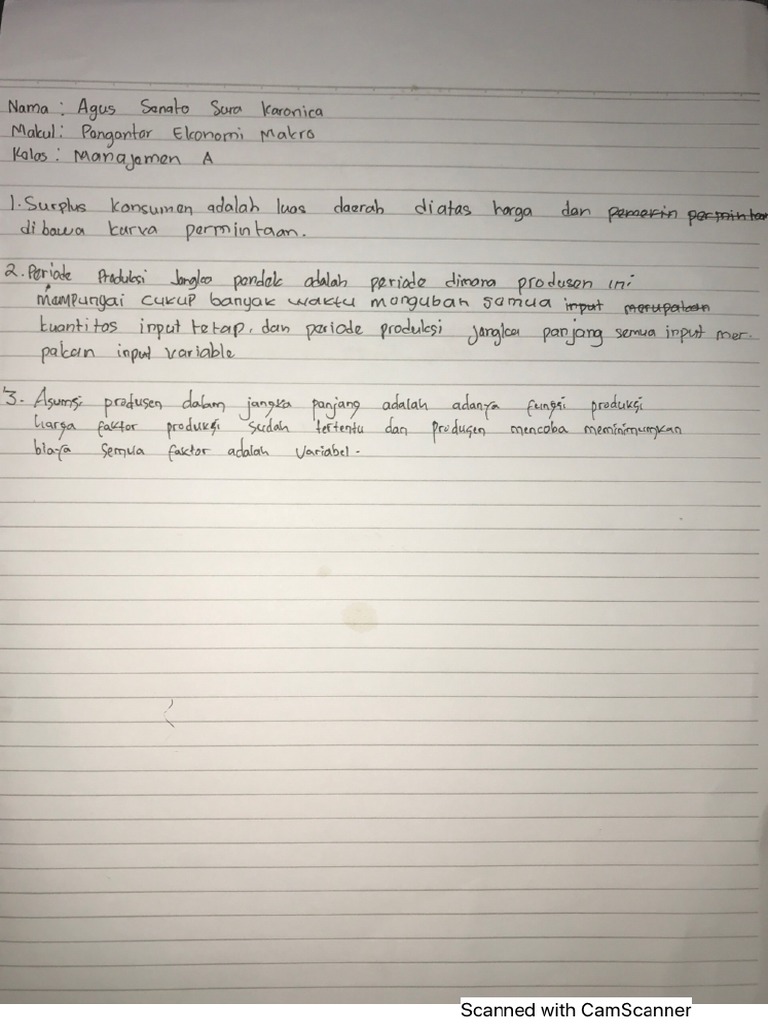 Nama : Agus Sanato Sura Karonica
Makul : Pangantar Ekonomi Makro
Kalas : Manajaman A
1. Surplus konsuman adalah luas daerah diatas harga dan
dibawa kurva permintaan.
2. Periode Produksi Jangka pandek adalah periode dimana produsen ini
mampungai cukup banyak waktu mangubah samua input merupakan
kuantitas input tetap, dan periode produksi jangka panjang semua input mer-
pakan input variable
3. Asumsi produsen dalam jangka panjang adalah adanya fungsi produksi
harga faktor produksi sudah tertentu dan produsen mencoba meminimumkan
biaya semua faktor adalah variabel.
Scanned with CamScanner